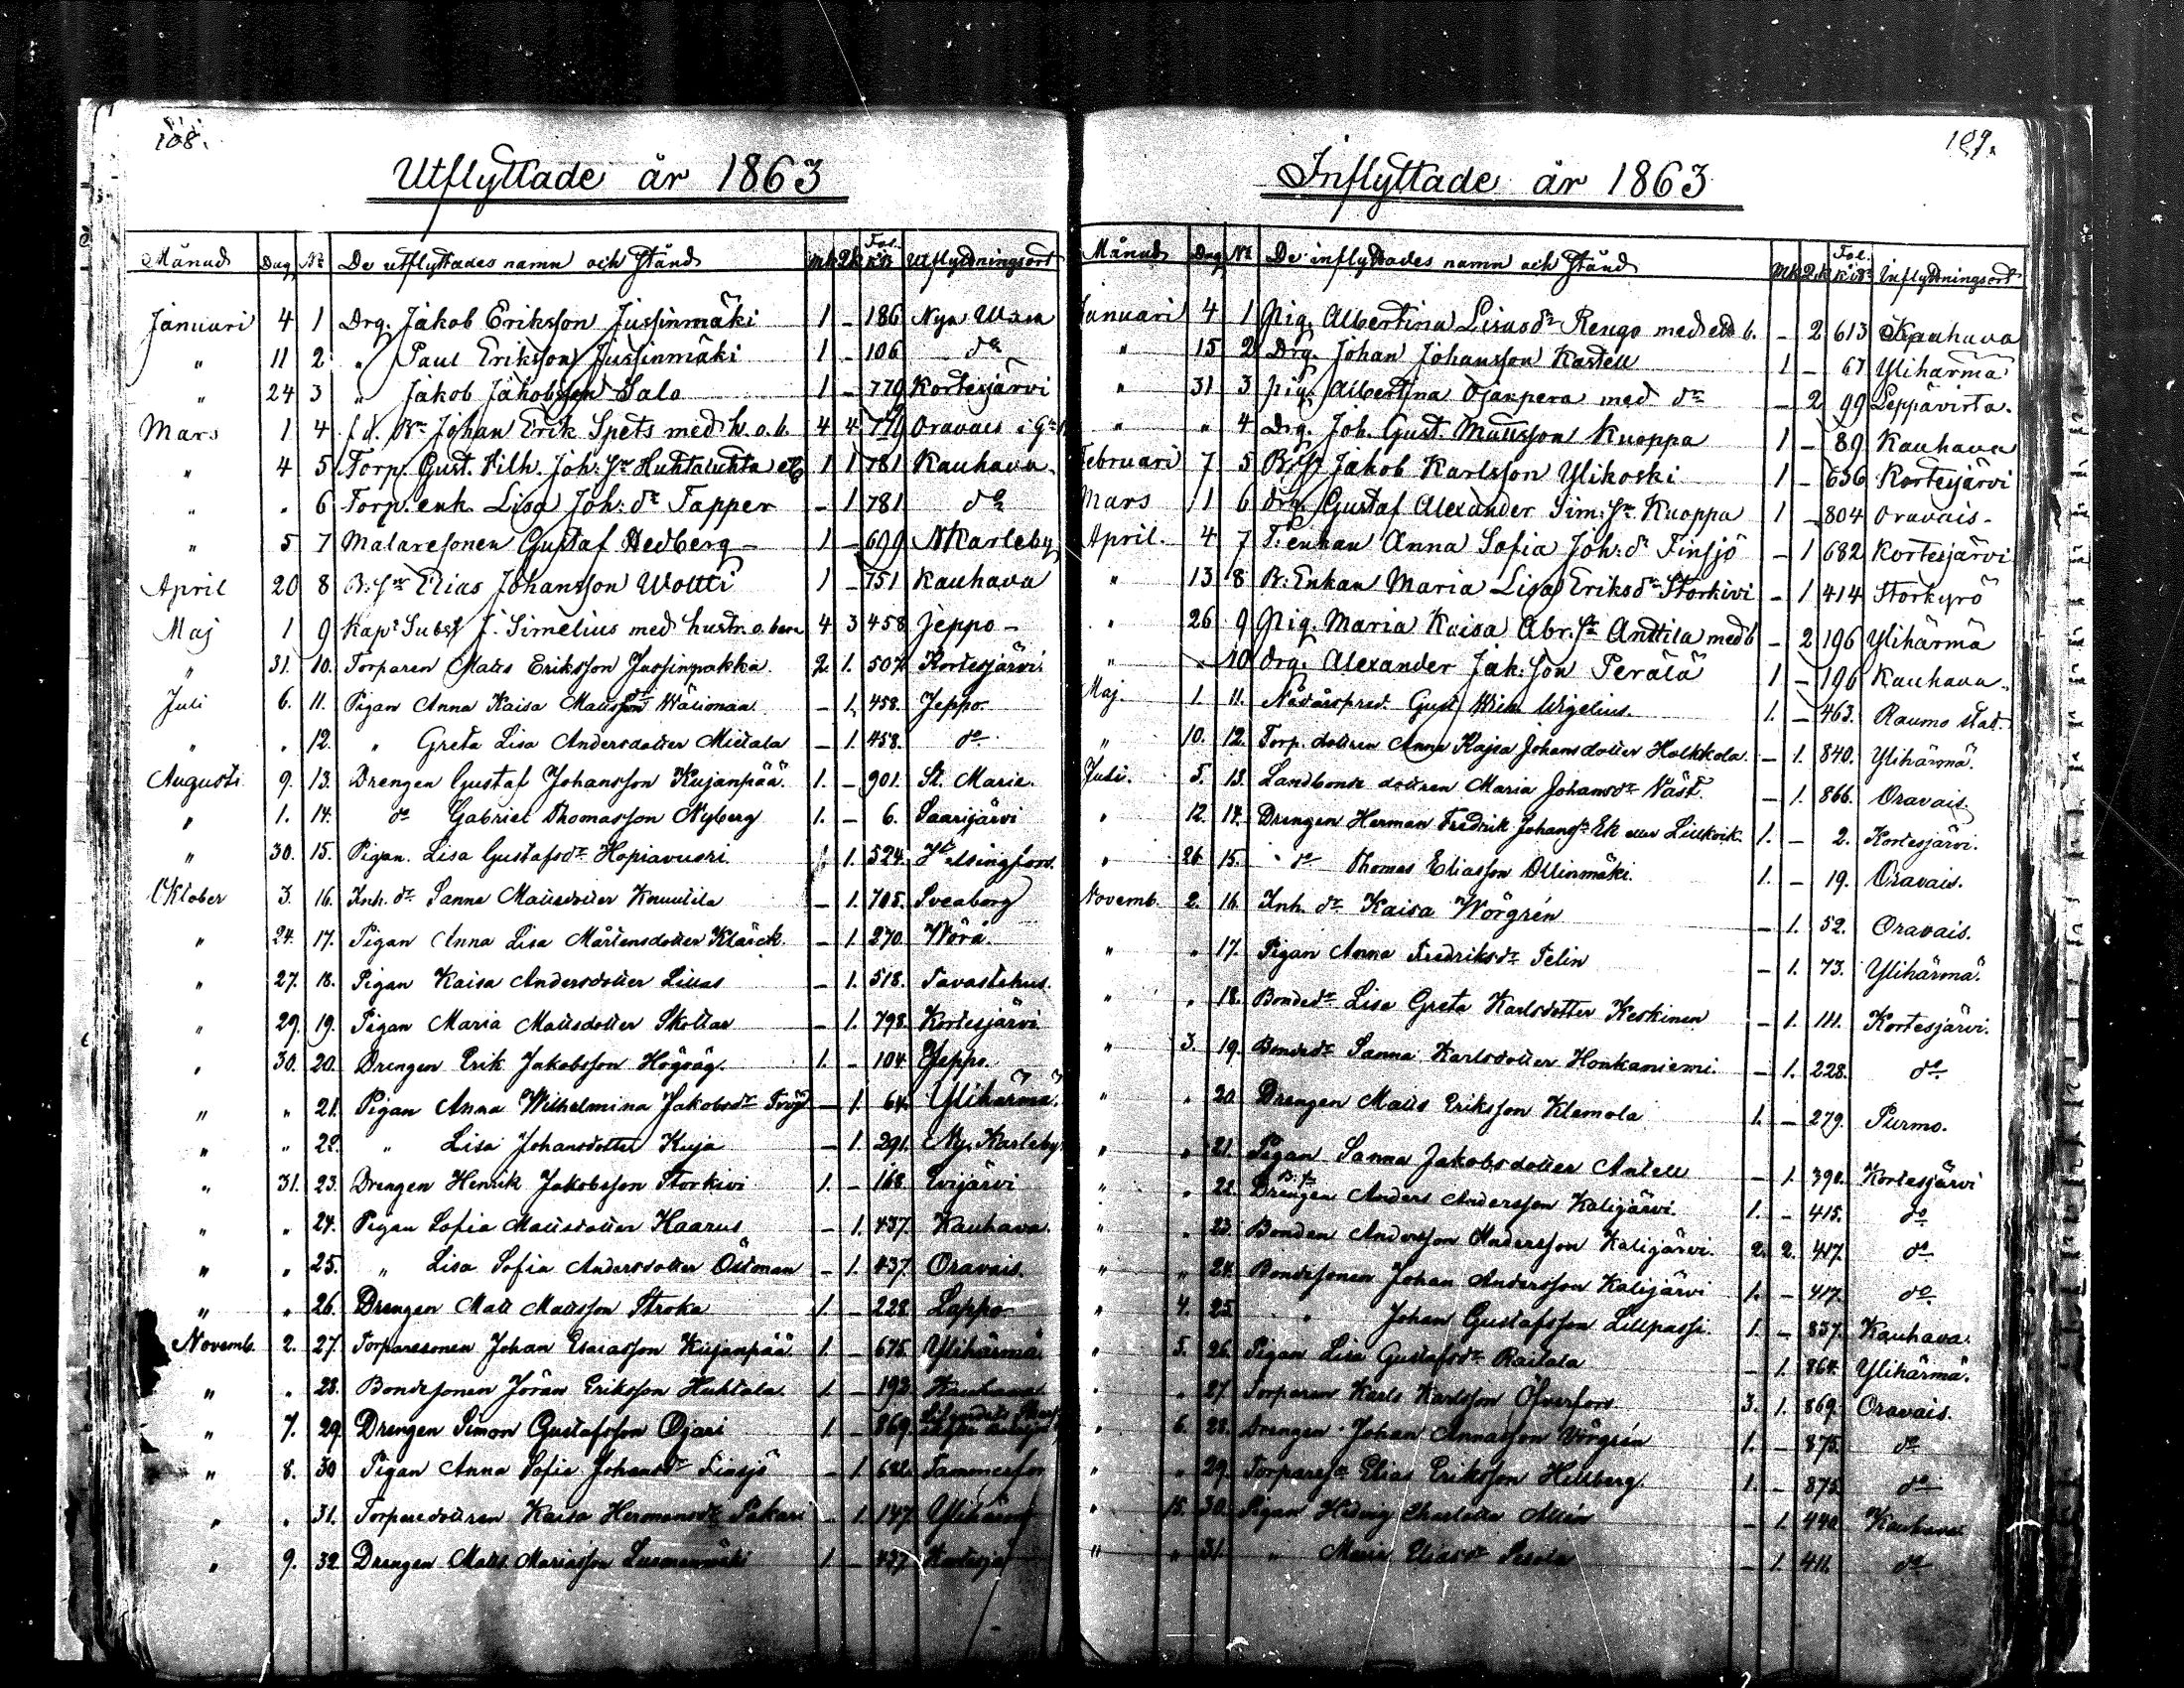 108.
Utflyttade år 1863
Månad Dag No De utflyttades namn och stånd Mk Qk Fol. K.B. Utflyttningsort
Januari 4 1 Drg. Jakob Eriksson Jussinmäki 1 - 186 Nya Wasa
" 11 2 " Paul Eriksson Jussinmäki 1 - 106 do
" 24 3 " Jakob Jakobsson Salo 1 - 770 Kortesjärvi
Mars 1 4 Johan Erik Spets med h. o. b. 4 4 Oravais
" 4 5 Torp. Gust. Wilh. Joh: sn Huhtaluhta 1 1 781 Kauhava
" " 6 Torp. enk. Lisa Joh: dr Tapper - 1 781 do
" 5 7 Malaresonen Gustaf Hedberg 1 - 699 NKarleby
April 20 8 B. sn Elias Johansson Woltti 1 - 751 Kauhava
Maj 1 9 Kapl Subst J. Simelius med hustr. o. barn 4 3 458 Jeppo
" 31. 10. Torparen Matts Eriksson Jussinpakka 2 1. 507. Kortesjärvi
Juli 6. 11. Pigan Anna Kaisa Mattsdr Wälimaa - 1. 458. Jeppo.
" " 12. " Greta Lisa Andersdotter Mietala - 1. 458. do
Augusti 9. 13. Drengen Gustaf Johansson Kujanpää 1. - 901. St. Marie.
" 1. 14. do Gabriel Thomasson Nyberg 1. - 6. Saarijärvi
" 30. 15. Pigan. Lisa Gustafsdr Hopiavuori 1. 524. Helsingfors.
Oktober 3. 16. Inh. dr Sanna Mattsdotter Knuutila - 1. 705. Sveaborg
" 24. 17. Pigan Anna Lisa Mårtensdotter Klärck. - 1. 270. Wörå.
" 27. 18. Pigan Kaisa Andersdotter Lillas - 1. 518. Tavastehus.
" 29. 19. Pigan Maria Mattsdotter Skottar - 1. 798. Kortesjärvi
" 30. 20. Drengen Erik Jakobsson Högväg. 1. - 104. Jeppo.
" " 21. Pigan Anna Wilhelmina Jakobsdr - 1. 64. Ylihärmä.
" " 22. " Lisa Johansdotter Kuja - 1. 291. Ny Karleby.
" 31. 23. Drengen Henrik Jakobsson Storkivi 1. - 168. Evijärvi
" " 24. Pigan Sofia Mattsdotter Haarus - 1. 437. Kauhava.
" " 25. " Lisa Sofia Andersdotter Östman - 1. 437. Oravais.
" " 26. Drengen Matt Mattsson Stroka 1. - 228. Lappo
Novemb. 2. 27. Torparesonen Johan Esaiasson Kujanpää 1. - 675. Ylihärmä
" " 28. Bondesonen Jöran Eriksson Huhtala. 1. - 193. Kauhava
" 7. 29. Drengen Simon Gustafsson Ojari 1. - 869.
" 8. 30 Pigan Anna Sofia Johansdr Finsjö - 1. 682. Tammerfor
" " 31. Torparedottren Kaisa Hermansdr Pakari - 1. 147. Ylihärmä
" 9. 32. Drengen Matts Mariasson 1. - 437.
109.
Inflyttade år 1863
Månad Dag No De inflyttades namn och stånd Mk Qk Fol. K.B. Inflyttningsort
Januari 4 1 Pig. Albertina Lisasdr Rengo med ett b. - 2 613 Kauhava
" 15 2 Drg. Johan Johansson Kastell 1 - 67 Ylihärmä
" 31 3 Pig. Albertina Ojanpera med do - 2 99 Leppävirta.
" " 4 Drg. Joh. Gust. Mattsson Kuoppa 1 - 89 Kauhava
Februari 7 5 B. sn Jakob Karlsson Ylikoski 1 - 636 Kortesjärvi
Mars 1 6 Drg. Gustaf Alexander Sim: sn Kuoppa 1 - 804 Oravais
April. 4 7 T. enkan Anna Sofia Joh: dr Finsjö - 1 682 Kortesjärvi
" 13 8 B. Enkan Maria Lisa Eriksdr Storkivi - 1 414 Storkyrö
" 26 9 Pig. Maria Kaisa Abr. Anttila med b - 2 196 Ylihärmä
" " 10 Drg. Alexander Jak: son Perälä 1 - 196 Kauhava
Maj. 1. 11. Nådårspred. Gust. Wilh. 1. - 463. Raumo stad
" 10. 12. Torp. dottren Anna Kajsa Johansdotter Holkkola - 1. 840. Ylihärmä.
Juli. 5. 13. Landbonde dottren Maria Johansdr Näst. - 1. 866. Oravais.
" 12. 14. Drengen Herman Fredrik Johanss. Ek eller Lillkvik. 1. - 2. Kortesjärvi.
" 26 15. do Thomas Eliasson Ollinmäki. 1. - 19. Oravais.
Novemb. 2. 16. Inh. dr Kaisa Wörgrén - 1. 52. Oravais.
" " 17. Pigan Anna Fredriksdr Felin - 1. 73. Ylihärmä.
" " 18. Bondedr Lisa Greta Karlsdotter Keskinen - 1. 111. Kortesjärvi.
" 3. 19. Bondedr Sanna Karlsdotter Honkaniemi. - 1. 228. do
" " 20 Drengen Matts Eriksson Klemola 1. - 279. Purmo.
" " 21. Pigan Sanna Jakobsdotter Antell - 1. 390. Kortesjärvi
" " 22. B. sn Drengen Anders Andersson Kalijärvi. 1. - 415. do
" " 23. Bonden Andersson Andersson Kalijärvi. 2. 2. 417. do
" " 24. Bondesonen Johan Andersson Kalijärvi 1. - 417. do
" 4. 25. " Johan Gustafsson Lillpassi. 1. - 837. Kauhava.
" 5. 26. Pigan Lisa Gustafsdr Raitala - 1. 864. Ylihärmä.
" " 27. Torparen Karls Karlsson Öfverfors 3. 1. 869. Oravais.
" 6. 28. Drengen Johan Annasson Vörgrén 1. - 875. do
" " 29. Torparesn Elias Eriksson Hellberg. 1. - 875. do
" 15. 30. Pigan Hedvig Charlotta - 1. 440. Kauhava
" " 31. " Maria Eliasdr - 1. 411. do